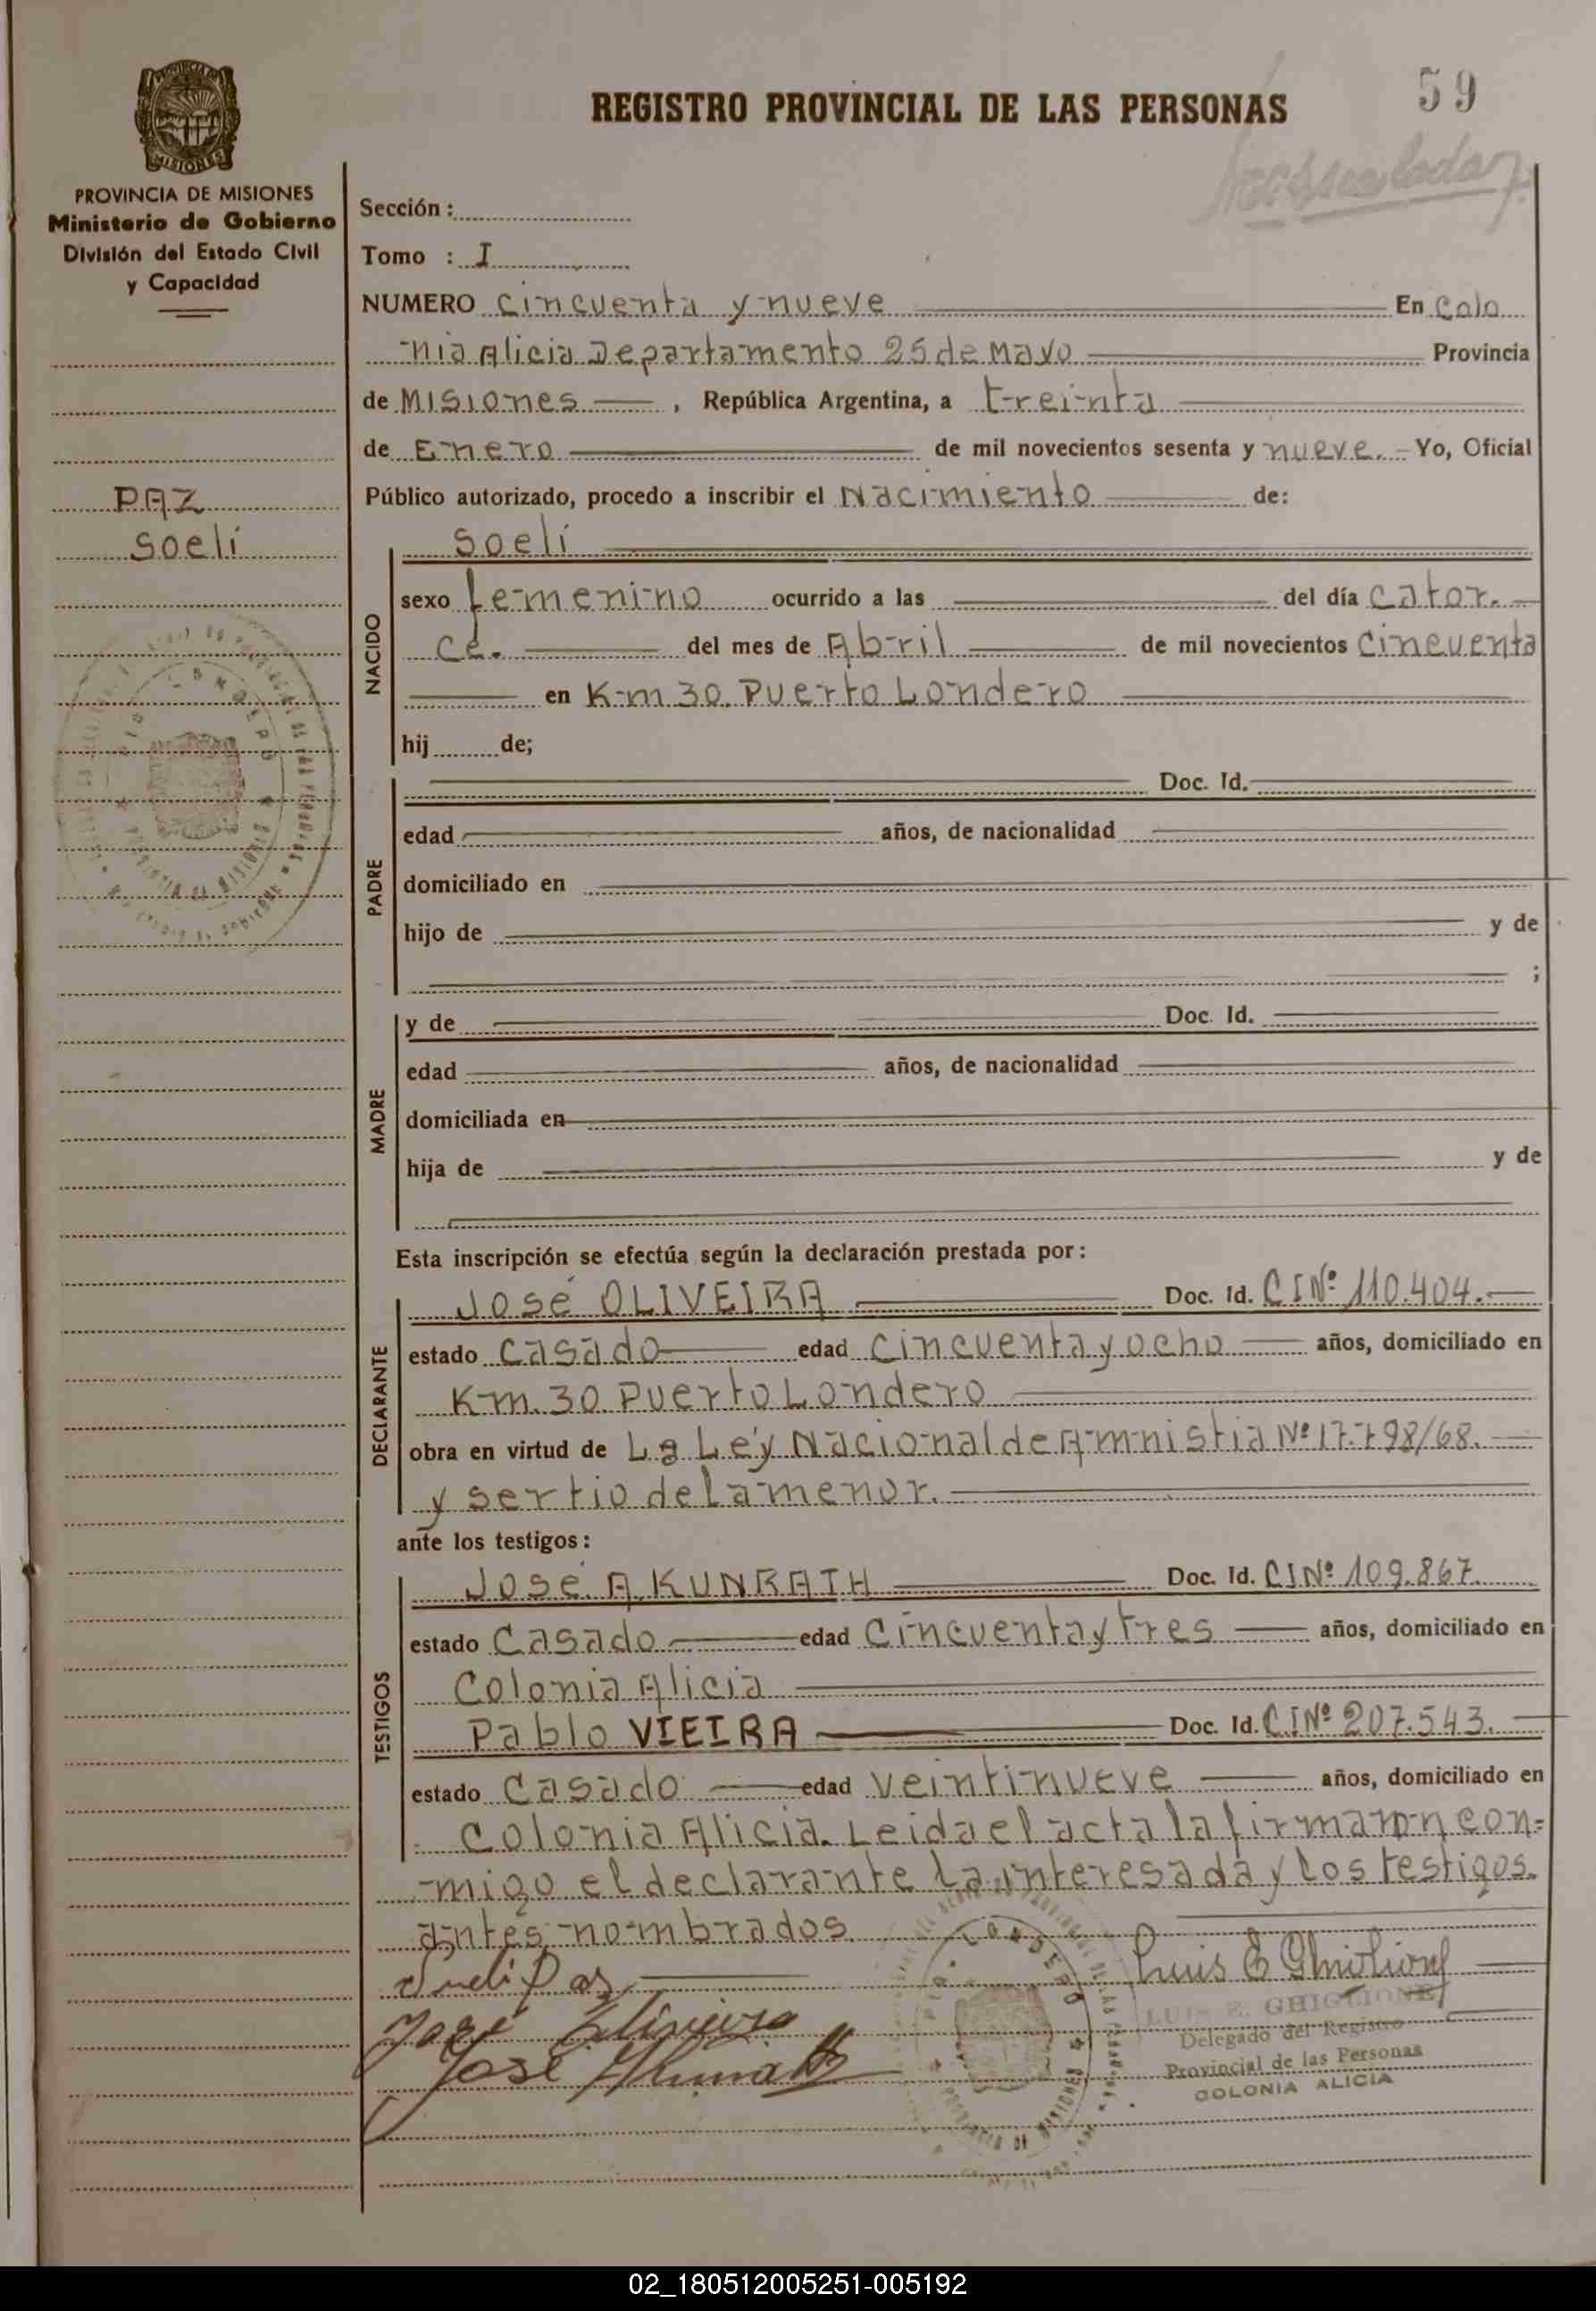 59
REGISTRO PROVINCIAL DE LAS PERSONAS
MISIONES
PROVINCIA DE MISIONES
Ministerio de Gobierno
División del Estado Civil
y Capacidad
PAZ
Soeli
Sección :
Tomo : I
NUMERO Cincuenta y nueve En Colo
nia Alicia Departamento 25 de Mayo Provincia
de Misiones , República Argentina, a treinta
de Enero de mil novecientos sesenta y nueve. Yo, Oficial
Público autorizado, procedo a inscribir el Nacimiento de:
NACIDO
Soeli
sexo femenino ocurrido a las del día Cator.
ce. del mes de Abril de mil novecientos Cincuenta
en Km 30. Puerto Londero
hij de;
PADRE
Doc. Id.
edad años, de nacionalidad
domiciliado en
hijo de y de
;
MADRE
y de Doc. Id.
edad años, de nacionalidad
domiciliada en
hija de y de
Esta inscripción se efectúa según la declaración prestada por :
DECLARANTE
José OLIVEIRA Doc. Id. C I Nº 110.404.
estado Casado edad Cincuenta y ocho años, domiciliado en
Km. 30 Puerto Londero
obra en virtud de La Ley Nacional de Amnistia Nº 17.798/68.
y ser tio de la menor.
ante los testigos :
TESTIGOS
José A. KUNRATH Doc. Id. C I Nº 109.867.
estado Casado edad Cincuenta y tres años, domiciliado en
Colonia Alicia
Pablo VIEIRA Doc. Id. C.I Nº 207.543.
estado Casado edad Veintinueve años, domiciliado en
Colonia Alicia. Leida el acta la firmaron con-
migo el declarante La interesada y Los testigos.
antes nombrados.
Sueli Paz
José Oliveira
José
Luis E Ghiglione
LUIS E. GHIGLIONE
Delegado del Registro
Provincial de las Personas
COLONIA ALICIA
02_180512005251-005192